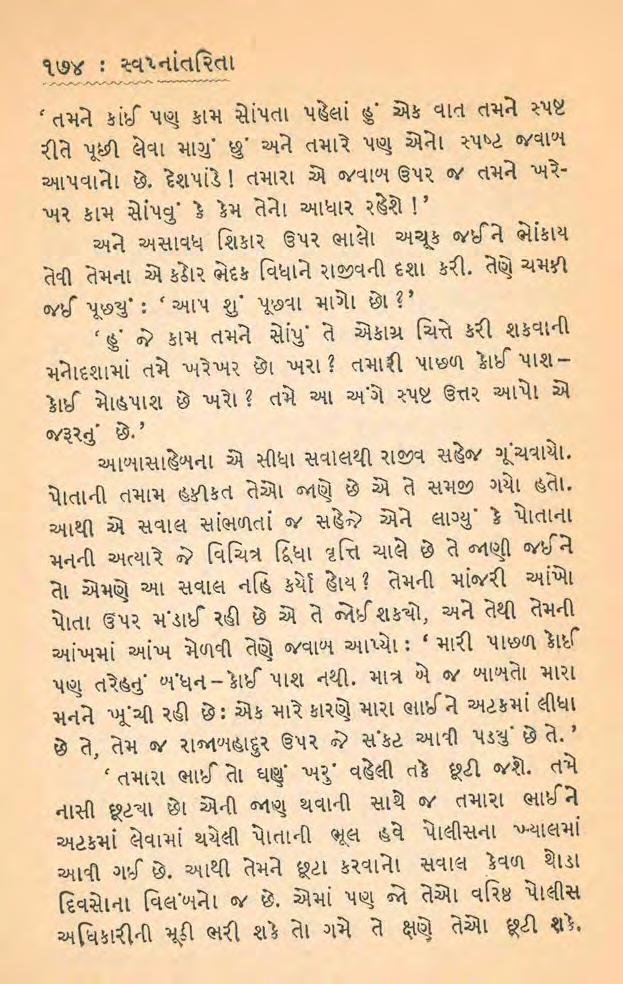 ૧૭૪ : સ્વપ્નાંતરિતા
‘ તમને કાંઈ પણ કામ સોંપતા પહેલાં હું એક વાત તમને સ્પષ્ટ
રીતે પૂછી લેવા માગું છું અને તમારે પણ એનો સ્પષ્ટ જવાબ
આપવાનો છે. દેશપાંડે ! તમારા એ જવાબ ઉપર જ તમને ખરે-
ખર કામ સોંપવું કે કેમ તેનો આધાર રહેશે ! ’
અને અસાવધ શિકાર ઉપર ભાલો અચૂક જઈને ભોંકાય
તેવી તેમના એ કઠોર ભેદક વિધાને રાજીવની દશા કરી. તેણે ચમકી
જઈ પૂછ્યું : ‘ આપ શું પૂછવા માગો છો ? ’
‘ હું જે કામ તમને સોંપું તે એકાગ્ર ચિત્તે કરી શકવાની
મનોદશામાં તમે ખરેખર છો ખરા ? તમારી પાછળ કોઈ પાશ –
કોઈ મોહપાશ છે ખરો ? તમે આ અંગે સ્પષ્ટ ઉત્તર આપો એ
જરૂરનું છે. ’
આબાસાહેબના એ સીધા સવાલથી રાજીવ સહેજ ગૂંચવાયો.
પોતાની તમામ હકીકત તેઓ જાણે છે એ તે સમજી ગયો હતો.
આથી એ સવાલ સાંભળતાં જ સહેજે એને લાગ્યું કે પોતાના
મનની અત્યારે જે વિચિત્ર દ્વિધા વૃત્તિ ચાલે છે તે જાણી જઈને
તો એમણે આ સવાલ નહિ કર્યો હોય ? તેમની માંજરી આંખો
પોતા ઉપર મંડાઈ રહી છે એ તે જોઈ શક્યો, અને તેથી તેમની
આંખમાં આંખ મેળવી તેણે જવાબ આપ્યો : ‘ મારી પાછળ કોઈ
પણ તરેહનું બંધન – કોઈ પાશ નથી. માત્ર બે જ બાબતો મારા
મનને ખૂંચી રહી છે : એક મારે કારણે મારા ભાઈને અટકમાં લીધા
છે તે, તેમ જ રાજાબહાદુર ઉપર જે સંકટ આવી પડ્યું છે તે. ’
‘ તમારા ભાઈ તો ઘણું ખરું વહેલી તકે છૂટી જશે. તમે
નાસી છૂટ્યા છો એની જાણ થવાની સાથે જ તમારા ભાઈને
અટકમાં લેવામાં થયેલી પોતાની ભૂલ હવે પોલીસના ખ્યાલમાં
આવી ગઈ છે. આથી તેમને છૂટા કરવાનો સવાલ કેવળ થોડા
દિવસોના વિલંબનો જ છે. એમાં પણ જો તેઓ વરિષ્ઠ પોલીસ
અધિકારીની મૂઠી ભરી શકે તો ગમે તે ક્ષણે તેઓ છૂટી શકે.